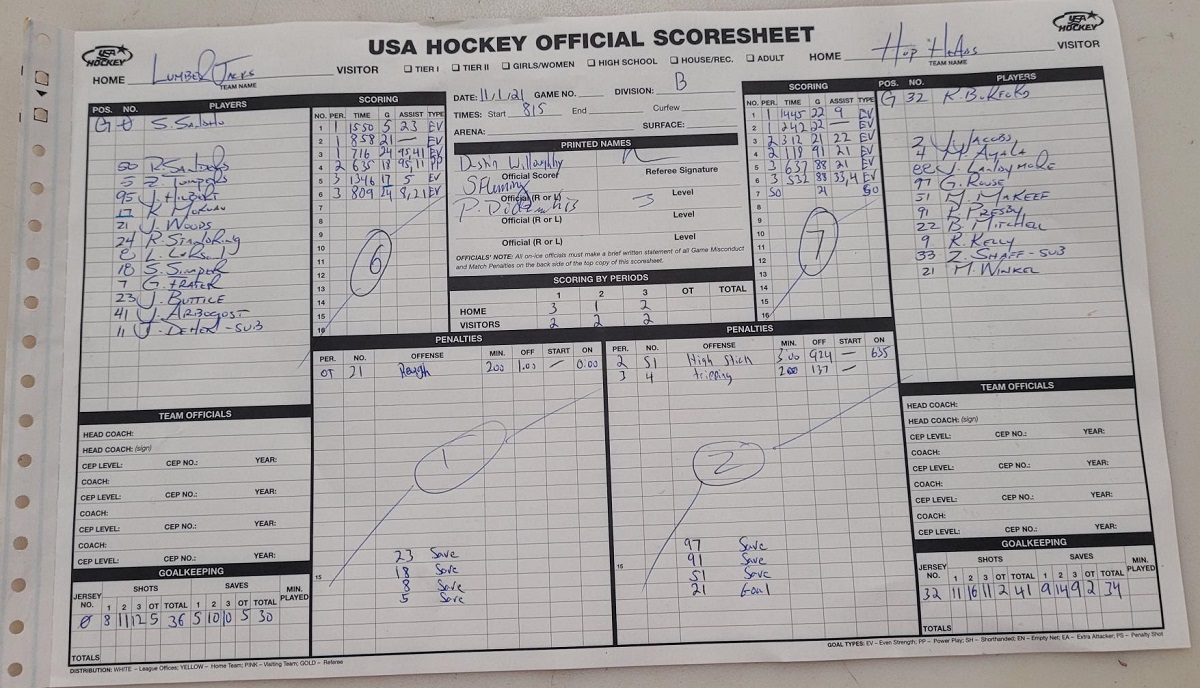 USA HOCKEY OFFICIAL SCORESHEET
USA HOCKEY
USA HOCKEY
HOME LumberJacks VISITOR
TEAM NAME
☐ TIER I ☐ TIER II ☐ GIRLS/WOMEN ☐ HIGH SCHOOL ☐ HOUSE/REC. ☐ ADULT
HOME Hop Heads VISITOR
TEAM NAME
POS. NO. PLAYERS
G 0 S. Sandhu
50 R. Sanders
5
95
17
21 J. Woods
24
8
18 S. Simper
7 G. Frater
23 J. Buttice
41 J. Arbogost
11 J. Demer - SUB
SCORING
NO. PER. TIME G ASSIST TYPE
1 1 1550 5 23 EV
2 1 858 21 — EV
3 1 716 24 95,41 EV
4 2 635 18 95,11 PP
5 3 1346 17 5 EV
6 3 809 24 8,21 EV
7
8
9
10
11
12
13
14
15
16
6
DATE: 11/1/21 GAME NO. DIVISION: B
TIMES: Start 815 End Curfew
ARENA: SURFACE:
PRINTED NAMES
Dustin Willoughby
Official Scorer Referee Signature
S Fleming
Official (R or L) Level
P.
Official (R or L) Level
Official (R or L) Level
OFFICIALS' NOTE: All on-ice officials must make a brief written statement of all Game Misconduct
and Match Penalties on the back side of the top copy of this scoresheet.
SCORING BY PERIODS
1 2 3 OT TOTAL
HOME 3 1 2
VISITORS 2 2 2
SCORING
NO. PER. TIME G ASSIST TYPE
1 1 1445 22 9 EV
2 1 242 22 — EV
3 2 312 21 22 EV
4 2 118 91 21 EV
5 3 637 88 21 EV
6 3 532 88 33,4 EV
7 SO 21 SO
8
9
10
11
12
13
14
15
16
7
POS. NO. PLAYERS
G 32
2 J. Jacobs
4 M. Ayala
88
97 G. Rouse
51 M. Makeef
91 P. Presby
22 B. Mitchell
9 R. Kelly
33 Z. Shaff - SUB
21 M. Winkel
PENALTIES
PER. NO. OFFENSE MIN. OFF START ON
OT 21 Rough 200 1:00 — 0:00
1
15
23 Save
18 Save
8 Save
5 Save
PENALTIES
PER. NO. OFFENSE MIN. OFF START ON
2 51 High Stick 924 — 635
3 4 tripping 200 137 —
2
15
97 Save
91 Save
51 Save
21 Goal
TEAM OFFICIALS
HEAD COACH:
HEAD COACH: (sign)
CEP LEVEL: CEP NO.: YEAR:
COACH:
CEP LEVEL: CEP NO.: YEAR:
COACH:
CEP LEVEL: CEP NO.: YEAR:
COACH:
CEP LEVEL: CEP NO.: YEAR:
GOALKEEPING
JERSEY NO. SHOTS SAVES MIN. PLAYED
1 2 3 OT TOTAL 1 2 3 OT TOTAL
0 8 11 12 5 36 5 10 10 5 30
TOTALS
TEAM OFFICIALS
HEAD COACH:
HEAD COACH: (sign)
CEP LEVEL: CEP NO.: YEAR:
COACH:
CEP LEVEL: CEP NO.: YEAR:
COACH:
CEP LEVEL: CEP NO.: YEAR:
COACH:
CEP LEVEL: CEP NO.: YEAR:
GOALKEEPING
JERSEY NO. SHOTS SAVES MIN. PLAYED
1 2 3 OT TOTAL 1 2 3 OT TOTAL
32 11 16 11 2 41 9 14 9 2 34
TOTALS
DISTRIBUTION: WHITE – League Offices; YELLOW – Home Team; PINK – Visiting Team; GOLD – Referee
GOAL TYPES: EV – Even Strength; PP – Power Play; SH – Shorthanded; EN – Empty Net; EA – Extra Attacker; PS – Penalty Shot